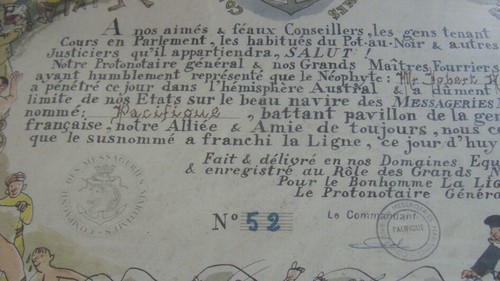 A nos aimés & féaux Conseillers, les gens tenant
Cours en Parlement, les habitués du Pot-au-Noir & autres
Justiciers qu'il appartiendra, SALUT!
Notre Protonotaire général & nos Grands Maîtres Fourriers
ayant humblement représenté que le Néophyte: Mr Robert
a pénétré ce jour dans l'hémisphère Austral & a dûment
limite de nos Etats sur le beau navire des MESSAGERIES
nommé: Pacifique, battant pavillon de la
française, notre Alliée & Amie de toujours, nous
que le susnommé a franchi la Ligne, ce jour d'huy
Fait & délivré en nos Domaines
& enregistré au Rôle des Grands
Pour le Bonhomme La
Le Protonotaire
N° 52
Le Commandant
PACIFIQUE